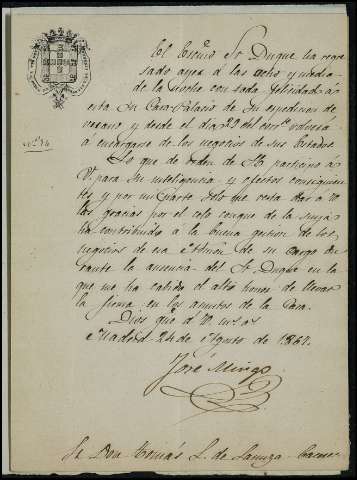 El Excmo Sr Duque ha regre
sado ayer a las ocho y media
de la noche con toda felicidad á
esta Su Casa-Palacio de Su expedicion de
verano y desde el dia 29 del corrte
á encargarse de los negocios de sus Estados
Lo que de orden de participo á
V. para Su inteligencia y efectos consiguien
tes y por mi parte solo me resta dar á V.
las gracias por el celo conque de la suya
ha contribuido á la buena gestion de los
negocios de esa Admon de su cargo du
rante la ausencia del Sr Duque en la
que me ha cabido el alto honor de llevar
la firma en los asuntos de la Casa.
Dios gue á V. ms as
Madrid 24 de Agosto de 1861.
José Mingo
Sr Don Tomás L. de Sanuza